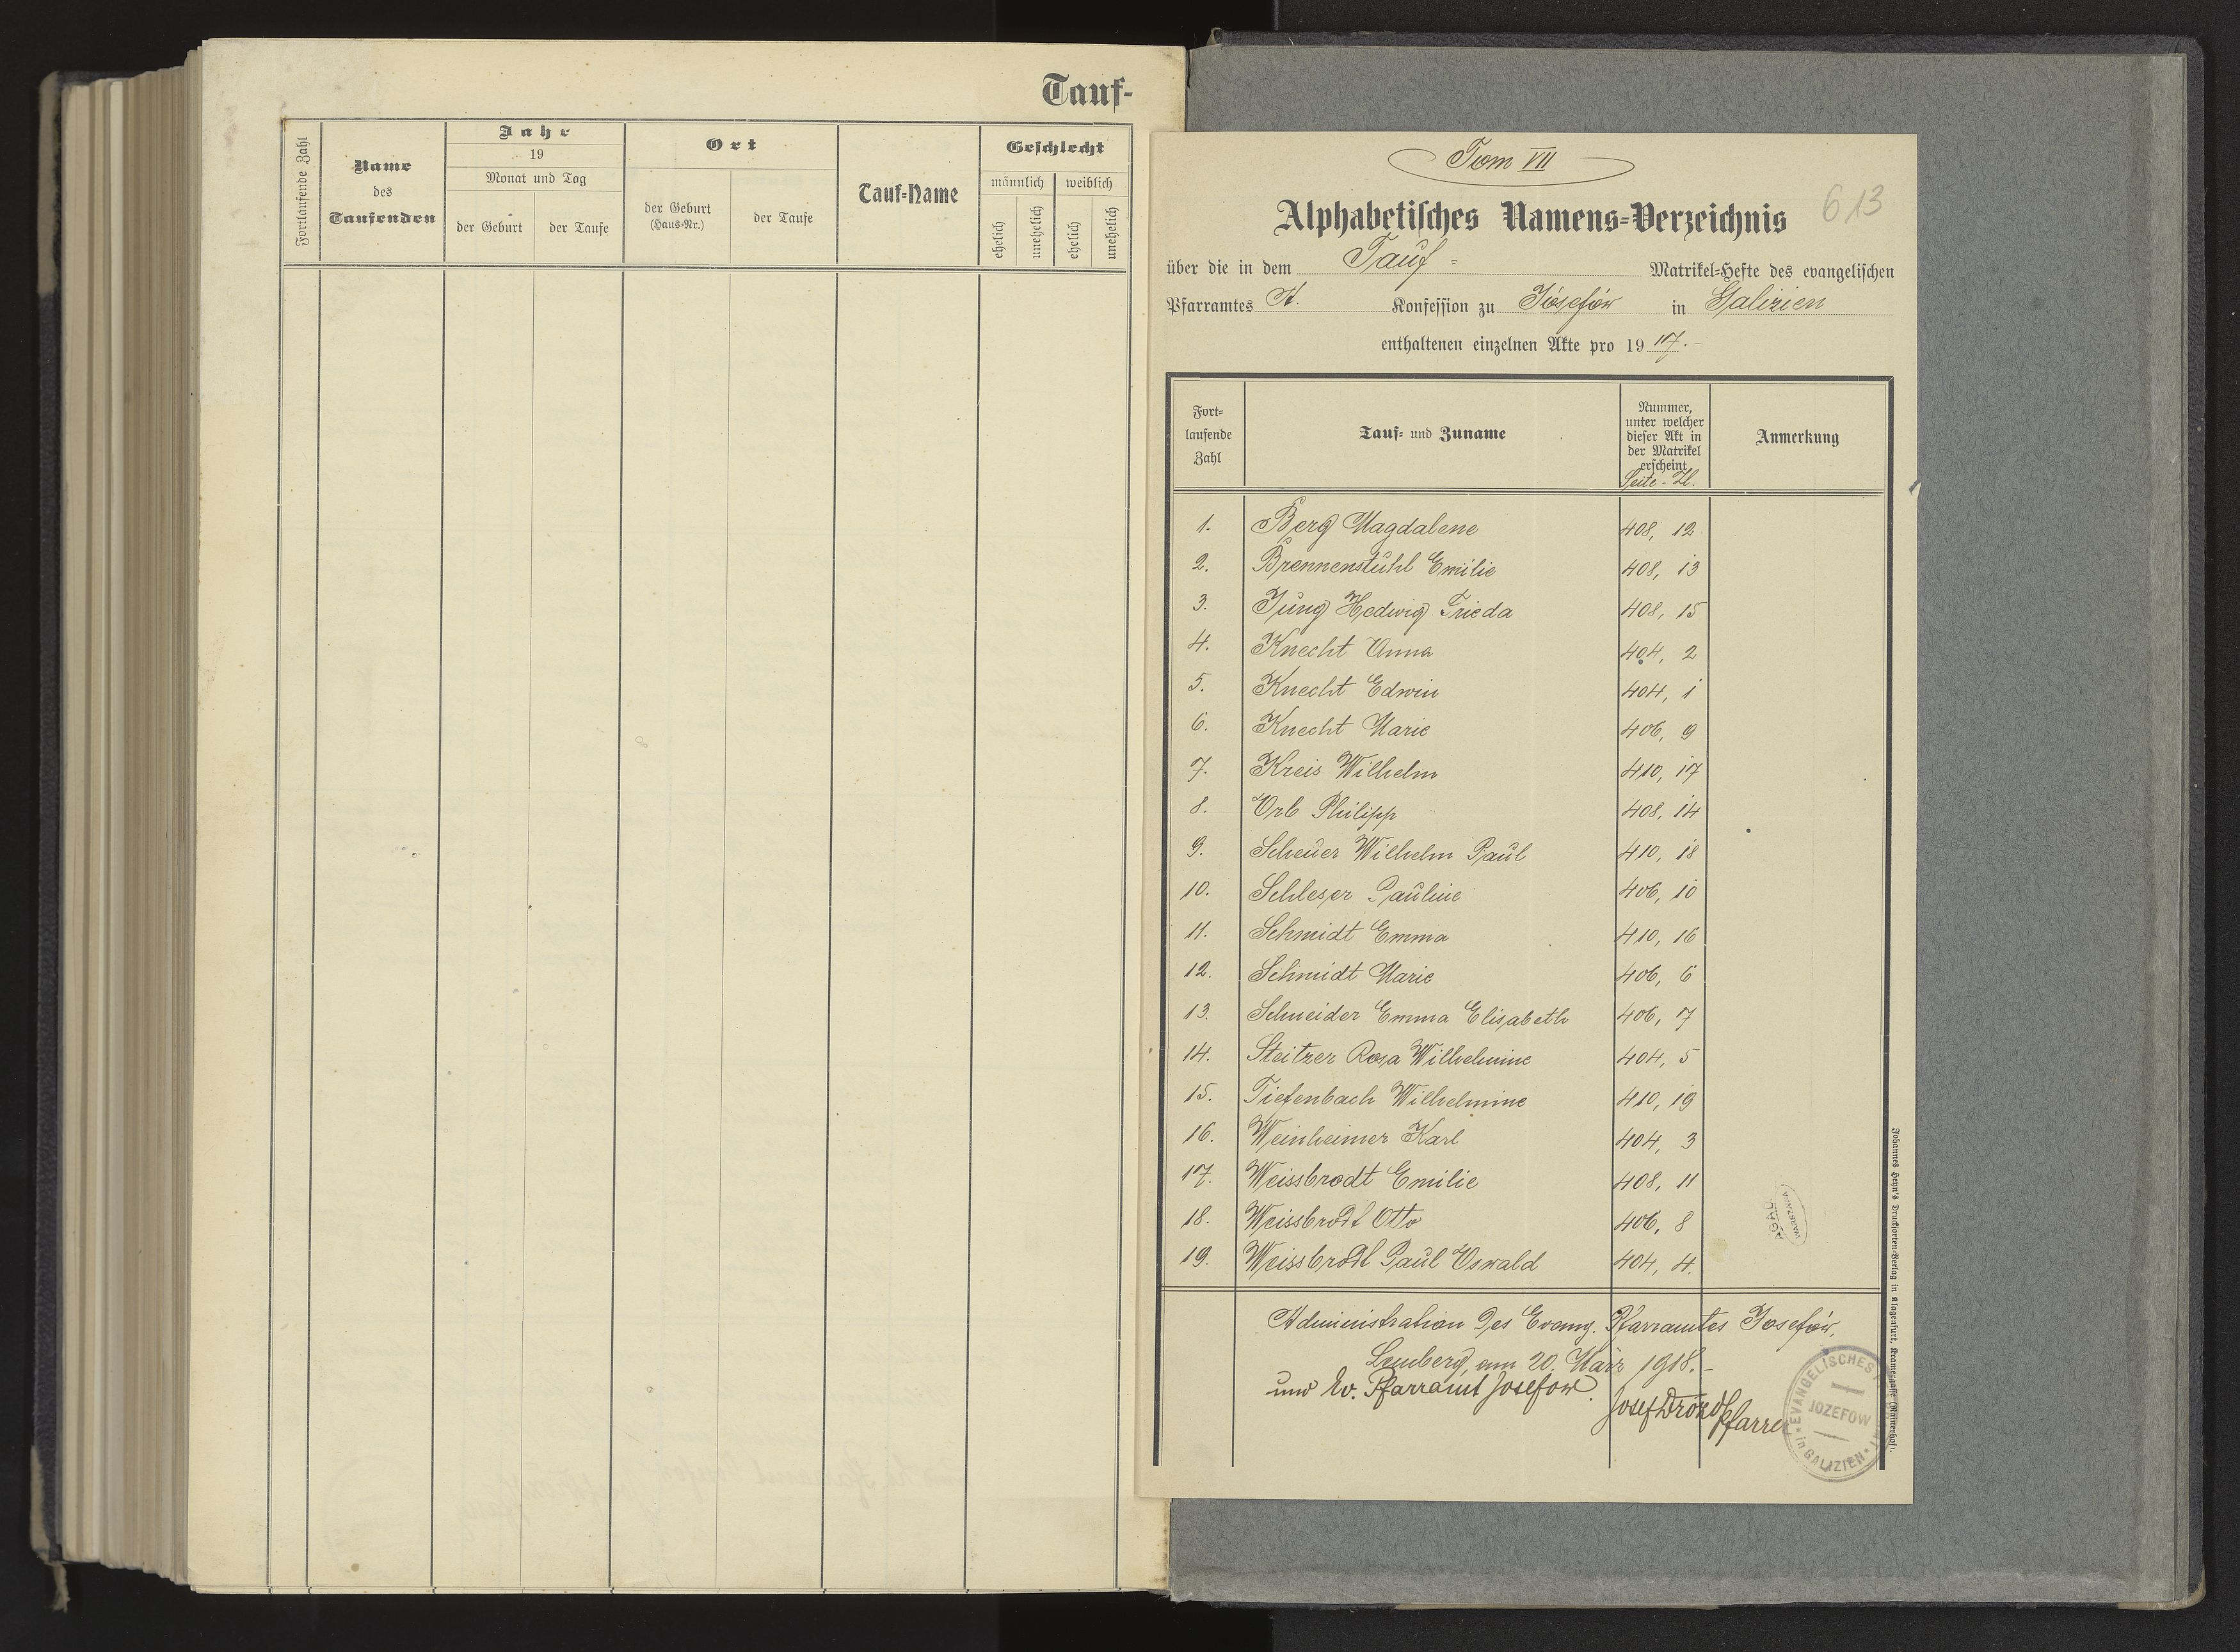 Tauf-
Fortlaufende Zahl
Name
des
Taufenden
Jahr
19
Monat und Tag
der Geburt
der Taufe
Ort
der Geburt
(Haus-Nr.)
der Taufe
Tauf-Name
Geschlecht
männlich
weiblich
ehelich
unehelich
ehelich
unehelich
Tom VII
613
Alphabetisches Namens-Verzeichnis
über die in dem Tauf- Matrikel-Hefte des evangelischen
Pfarramtes A. Konfession zu Jósefów in Galizien
enthaltenen einzelnen Akte pro 1917.-
Fort-
laufende
Zahl
Tauf- und Zuname
Nummer,
unter welcher
dieser Akt in
der Matrikel
erscheint
Seite - Zl.
Anmerkung
1. Berg Magdalene 408, 12
2. Brennenstuhl Emilie 408, 13
3. Jung Hedwig Frieda 408, 15
4. Knecht Anna 404, 2
5. Knecht Edwin 404, 1
6. Knecht Marie 406, 9
7. Kreis Wilhelm 410, 17
8. Orb Philipp 408, 14
9. Scheuer Wilhelm Paul 410, 18
10. Schleser Pauline 406, 10
11. Schmidt Emma 410, 16
12. Schmidt Marie 406, 6
13. Schneider Emma Elisabeth 406, 7
14. Steitzer Rosa Wilhelmine 404, 5
15. Tiefenbach Wilhelmine 410, 19
16. Weinheimer Karl 404, 3
17. Weissbrodt Emilie 408, 11
18. Weissbrodt Otto 406, 8
19. Weissbrodt Paul Oswald 404, 4.
AGAD
WARSZAWA
Administration des Evang. Pfarramtes Josefów,
Lemberg, am 20. März 1918.-
und Ev. Pfarramt Josefow.
Josef Drozd Pfarrer
EVANGELISCHES
JOZEFOW
in GALIZIEN
Johannes Heyn's Drucksorten-Verlag in Klagenfurt, Kramergasse